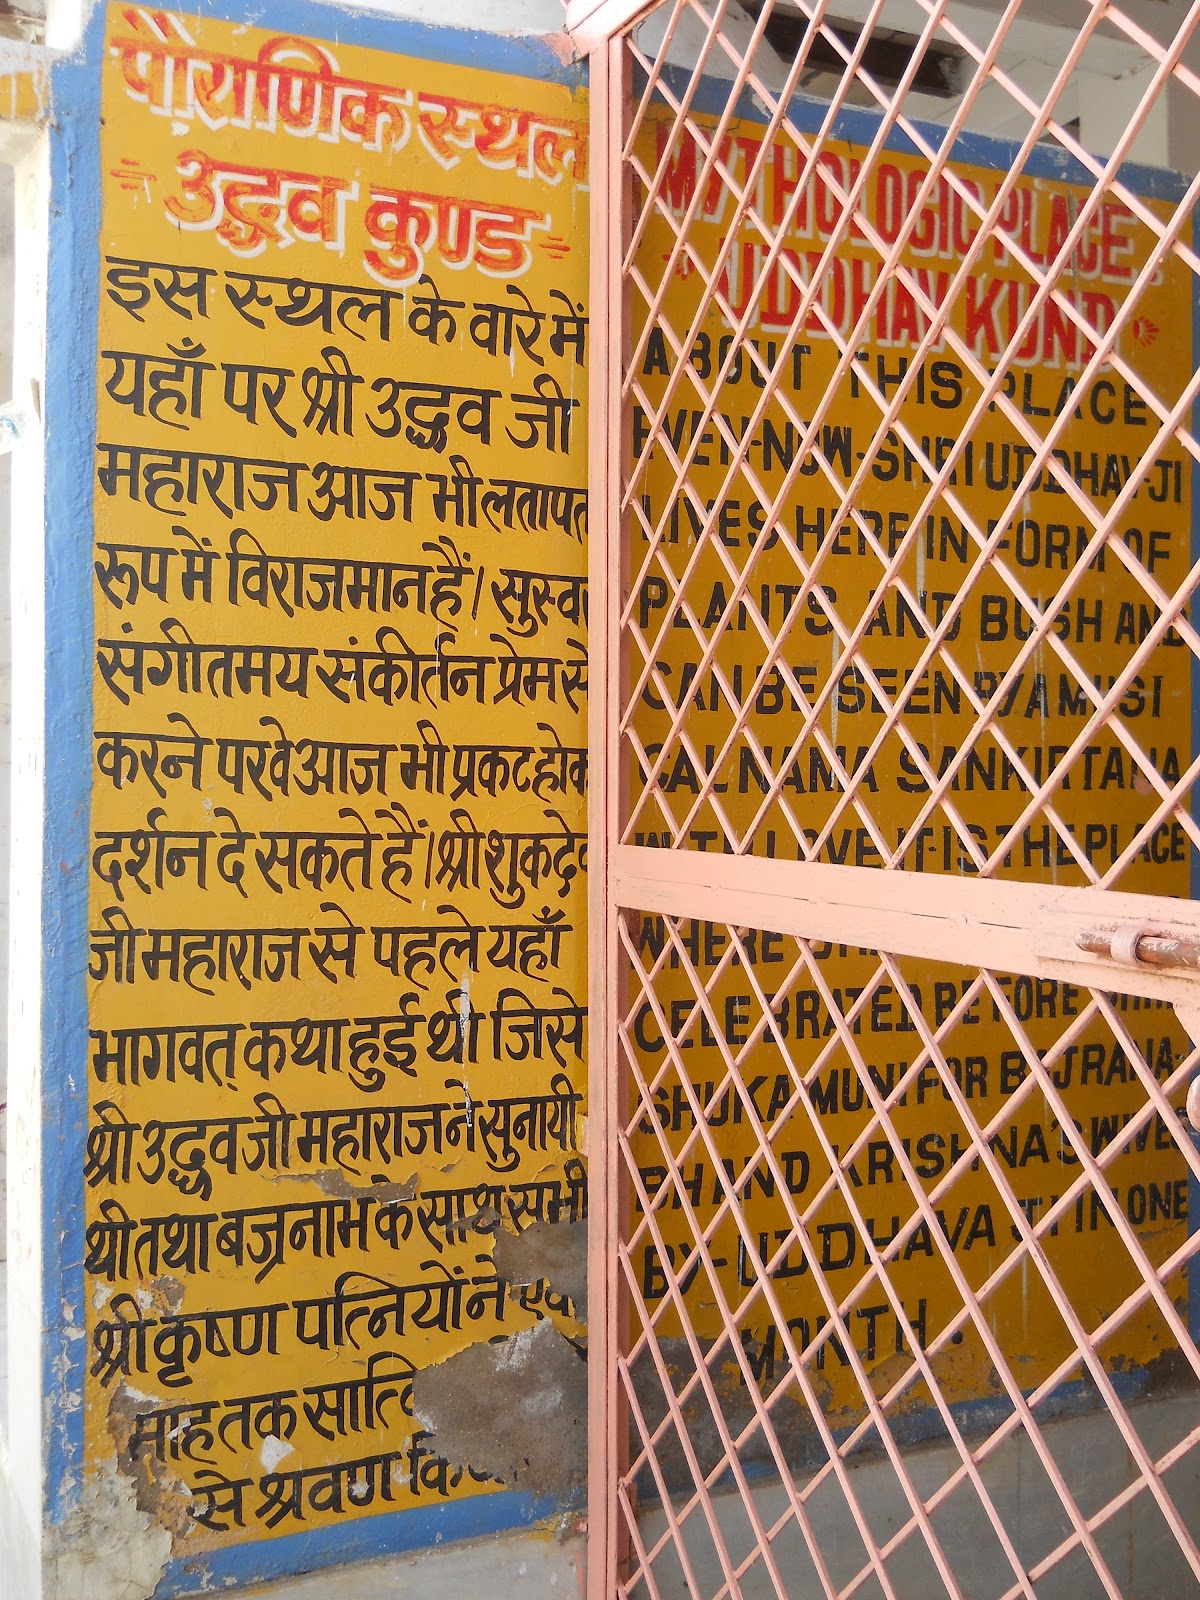 पौराणिक स्थल
उद्धव कुण्ड
इस स्थल के वारे में
यहाँ पर श्री उद्धव जी
महाराज आज भी लतापत
रूप में विराजमान हैं। सुस्व
संगीतमय संकीर्तन प्रेम से
करने पर वे आज भी प्रकट होक
दर्शन दे सकते हैं। श्री शुकदेव
जी महाराज से पहले यहाँ
भागवत् कथा हुई थी जिसे
श्री उद्धव जी महाराज ने सुनायी
थी तथा बज्रनाभ के साथ सभी
श्री कृष्ण पत्नियों ने
माह तक सात्वि
से श्रवण कि
MYTHOLOGIC PLACE,
UDDHAV KUND
ABOUT THIS PLACE,
EVEN-NOW-SHRI UDDHAV-JI
LIVES HERE IN FORM OF
PLANTS AND BUSH AND
CAN BE SEEN BY A MUSI
CAL NAMA SANKIRTANA
WITH LOVE IT-IS THE PLACE
WHERE
CELEBRATED BEFORE SHRI
SHUKA MUNI FOR BAJRANA-
BH AND KRISHNA'S WIVES
BY-UDDHAVA JI IN ONE
MONTH.